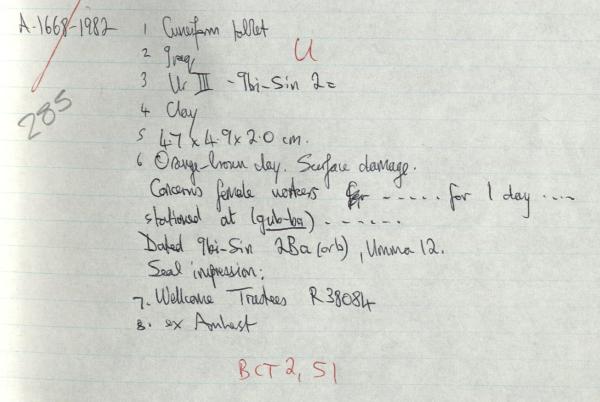 A-1668-1982 1 Cuneiform tablet
U
2 Iraq
3 Ur III - Ibi-Sin 2=
285
4 Clay
5 4.7 x 4.9 x 2.0 cm.
6 Orange-brown clay. Surface damage.
Concerns female workers ----- for 1 day ....
stationed at (gub-ba) ------.
Dated Ibi-Sin 2Ba (orb), Umma 12.
Seal impression:
7. Wellcome Trustees R38084
8. ex Amherst
BCT 2, 51